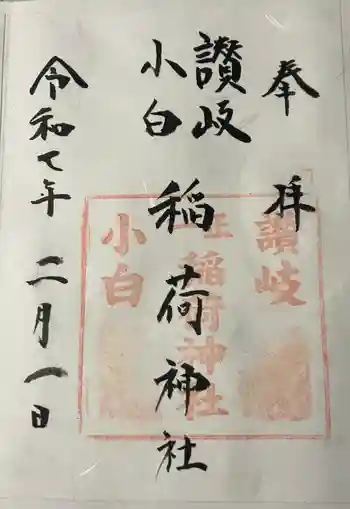 奉拝
讃岐
小白
稲荷神社
令和七年二月一日
讃岐
稲荷神社
小白